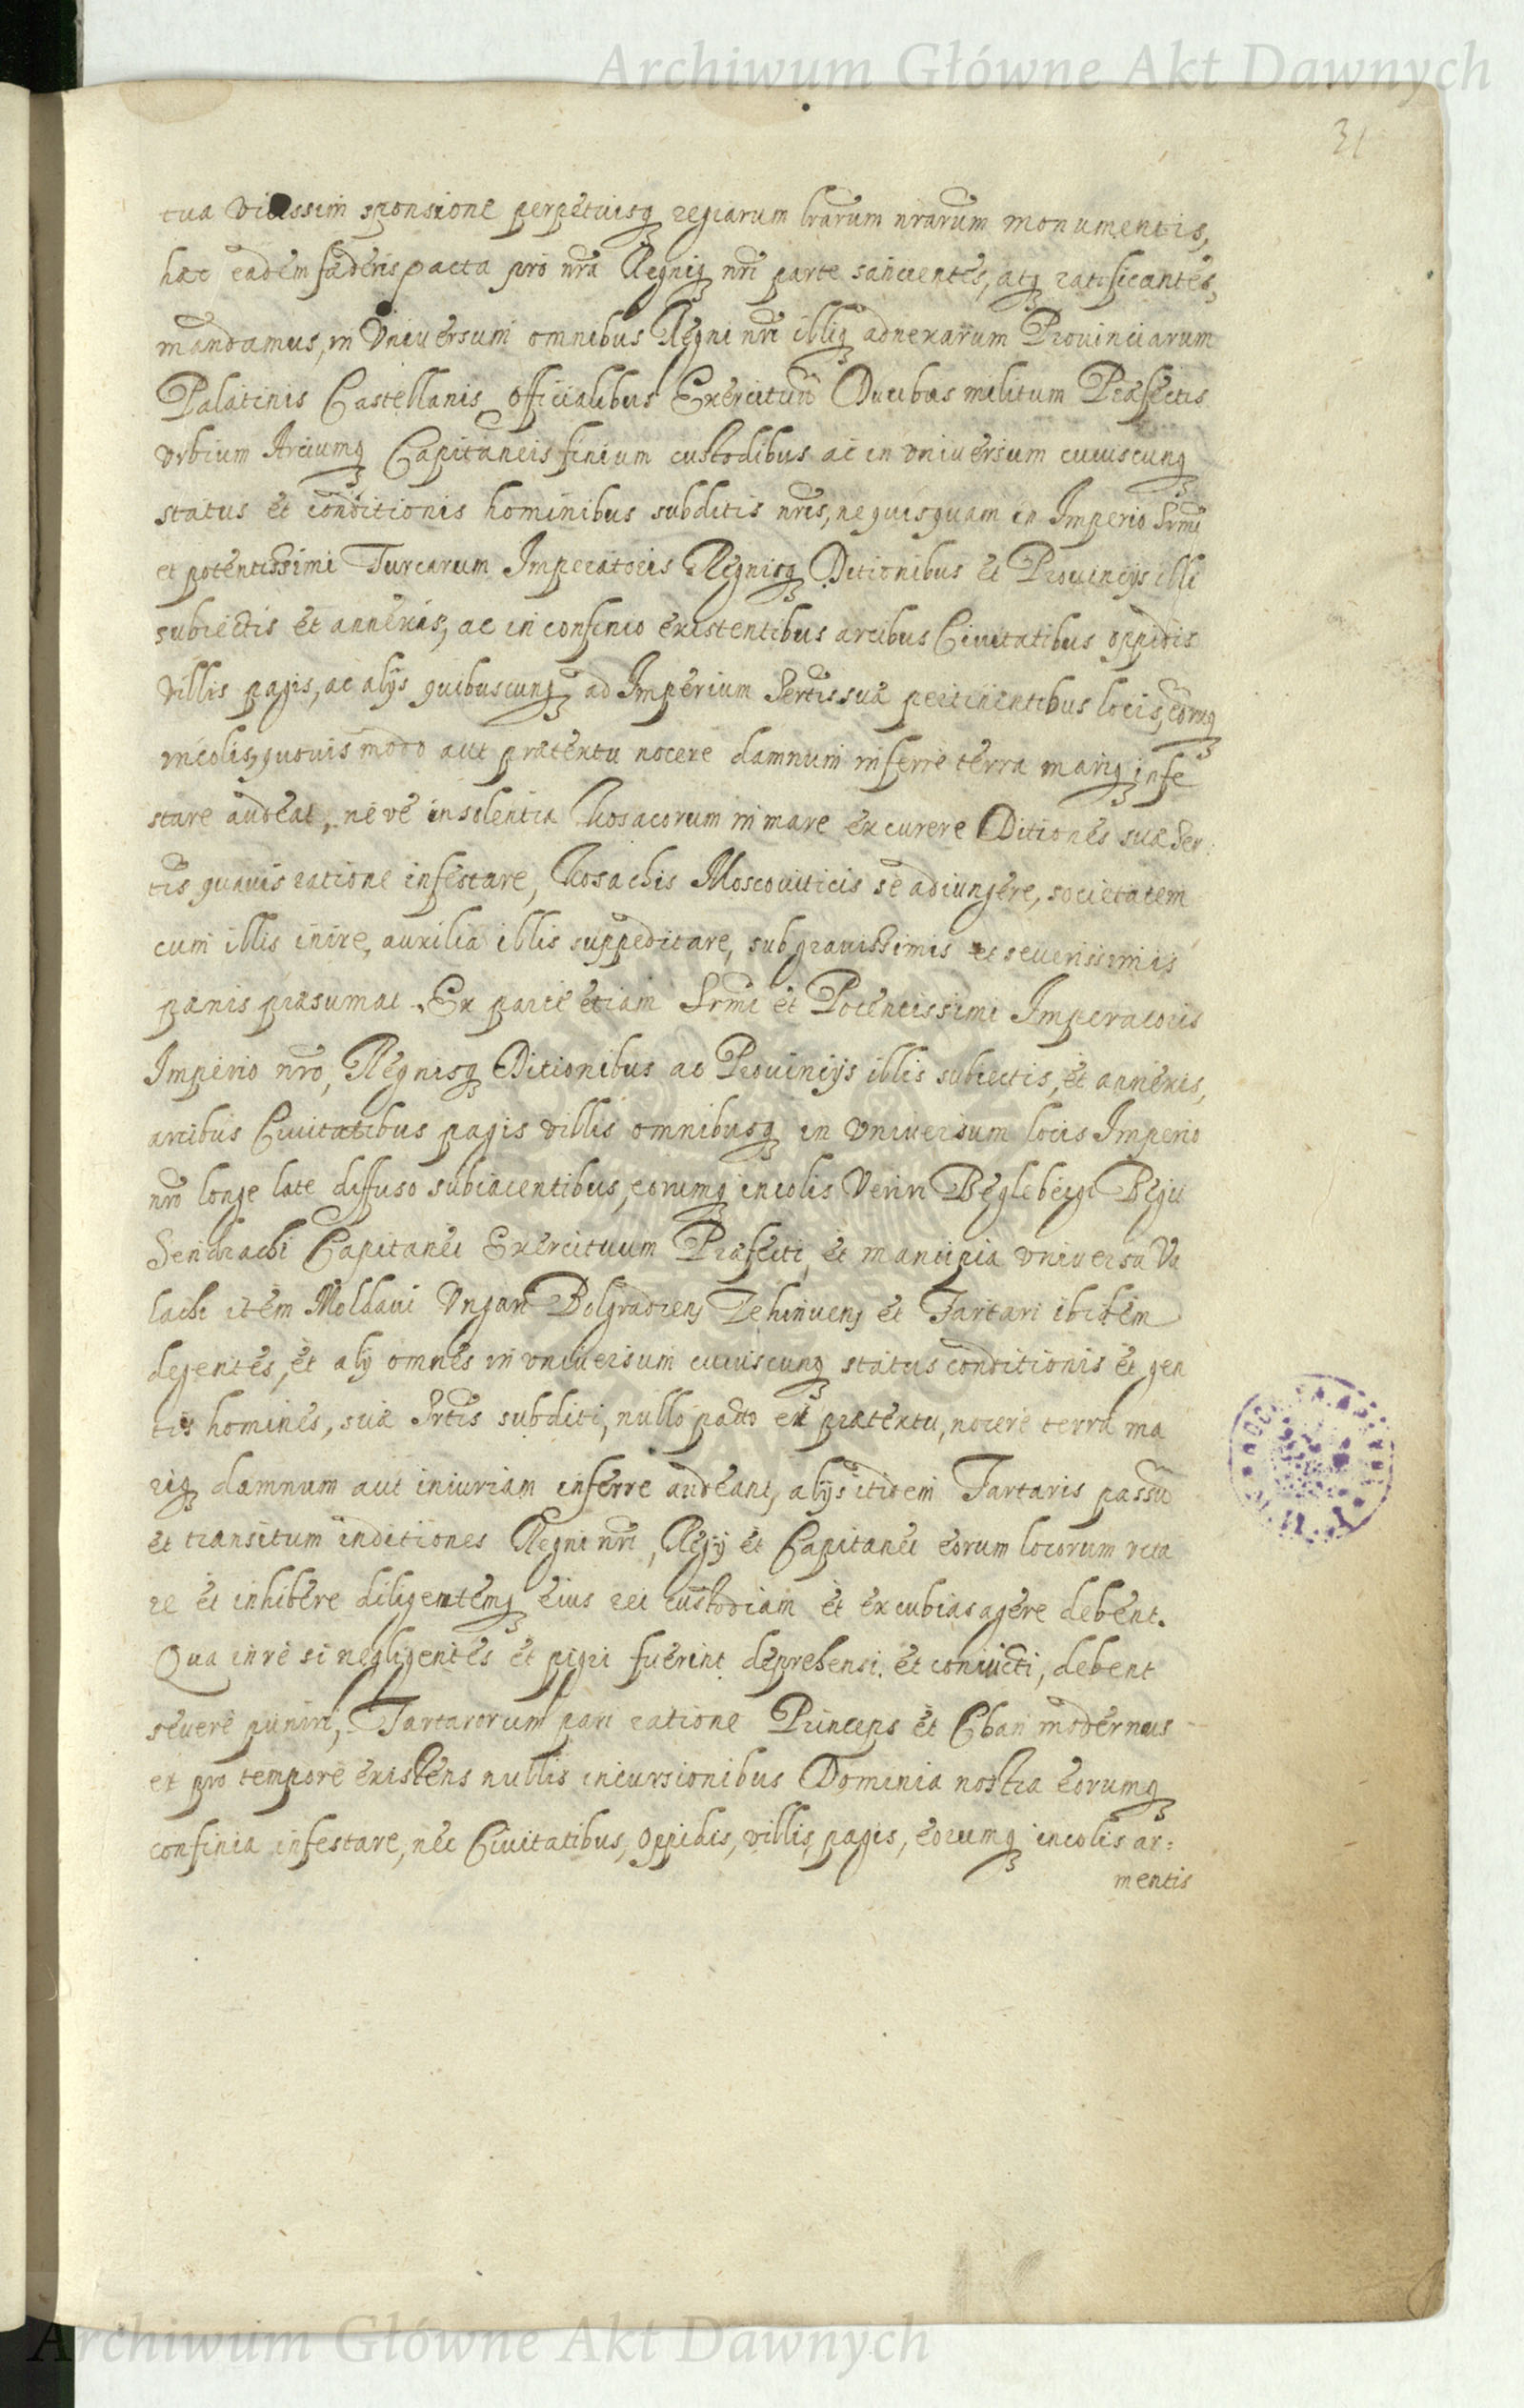 Archiwum Główne Akt Dawnych
31
tua vicissim sponsione perpetuisq regiarum lrarum nrarum monumentis,
hæc eadem fæderis pacta pro nra Regniq nri parte sancientes, atq ratificantes,
mandamus, in Vniversum omnibus Regni nri illiq adnexarum Prouinciarum
Palatinis Castellanis officialibus Exercituu Ducibus militum Præfectis
vrbium Arciumq Capitaneis finium custodibus ac in vniversum cuiuscunq
status et conditionis hominibus subditis nris, ne quisquam in Imperio Srmi
et potentissimi Turcarum Imperatoris Regnisq Ditionibus et Prouincijs illi
subiectis et annexis, ac in confinio existentibus arcibus Civitatibus oppidis
villis pagis, ac alijs quibuscunq ad Imperium Sertis suæ pertinentibus locis, eorūq
incolis, quovis modo aut prætextu nocere damnum inferre terra mariq infe
stare audeat, ne ve insolentia Kosacorum in mare excurere Ditiones suæ Ser:
tis quavis ratione infestare, Kosachis Moscouiticis se adiungere, societatem
cum illis inire, auxilia illis suppeditare, sub grauissimis et seuerissimis
pænis præsumat. Ex parte etiam Srmi et Potentissimi Imperatoris
Imperio nro, Regnisq Ditionibus ac Prouincijs illis subiectis, et annexis,
arcibus Civitatibus pagis villis omnibusq in vniuersum locis Imperio
nro longe late diffuso subiacentibus, eorumq incolis Veziri Beglebergi Begii
Sendziachi Capitanei Exercituum Præfecti, et mancipia vniuersa Va
lachi item Moldaui Vngari Bolgradiens Tehinuens et Tartari ibidem
degentes, et alij omnes in vniuersum cuiuscunq status conditionis et gen
tis homines, suæ Srtis subditi, nullo pacto et prætextu, nocere terra ma
riq damnum aut iniuriam inferre audeant, alijs itidem Tartaris passū
et transitum in ditiones Regni nri, Regij et Capitanei eorum locorum veta
re et inhibere diligentemq eius rei custodiam et excubias agere debent.
Qua in re si negligentes et pigri fuerint deprehensi et conuicti, debent
severe puniri, Tartarorum pari ratione Princeps et Chan modernus
et pro tempore existens nullis incursionibus Dominia nostra eorumq
confinia infestare, nec Civitatibus, oppidis, villis, pagis, eorumq incolis ar:
mentis
Archiwum Główne Akt Dawnych